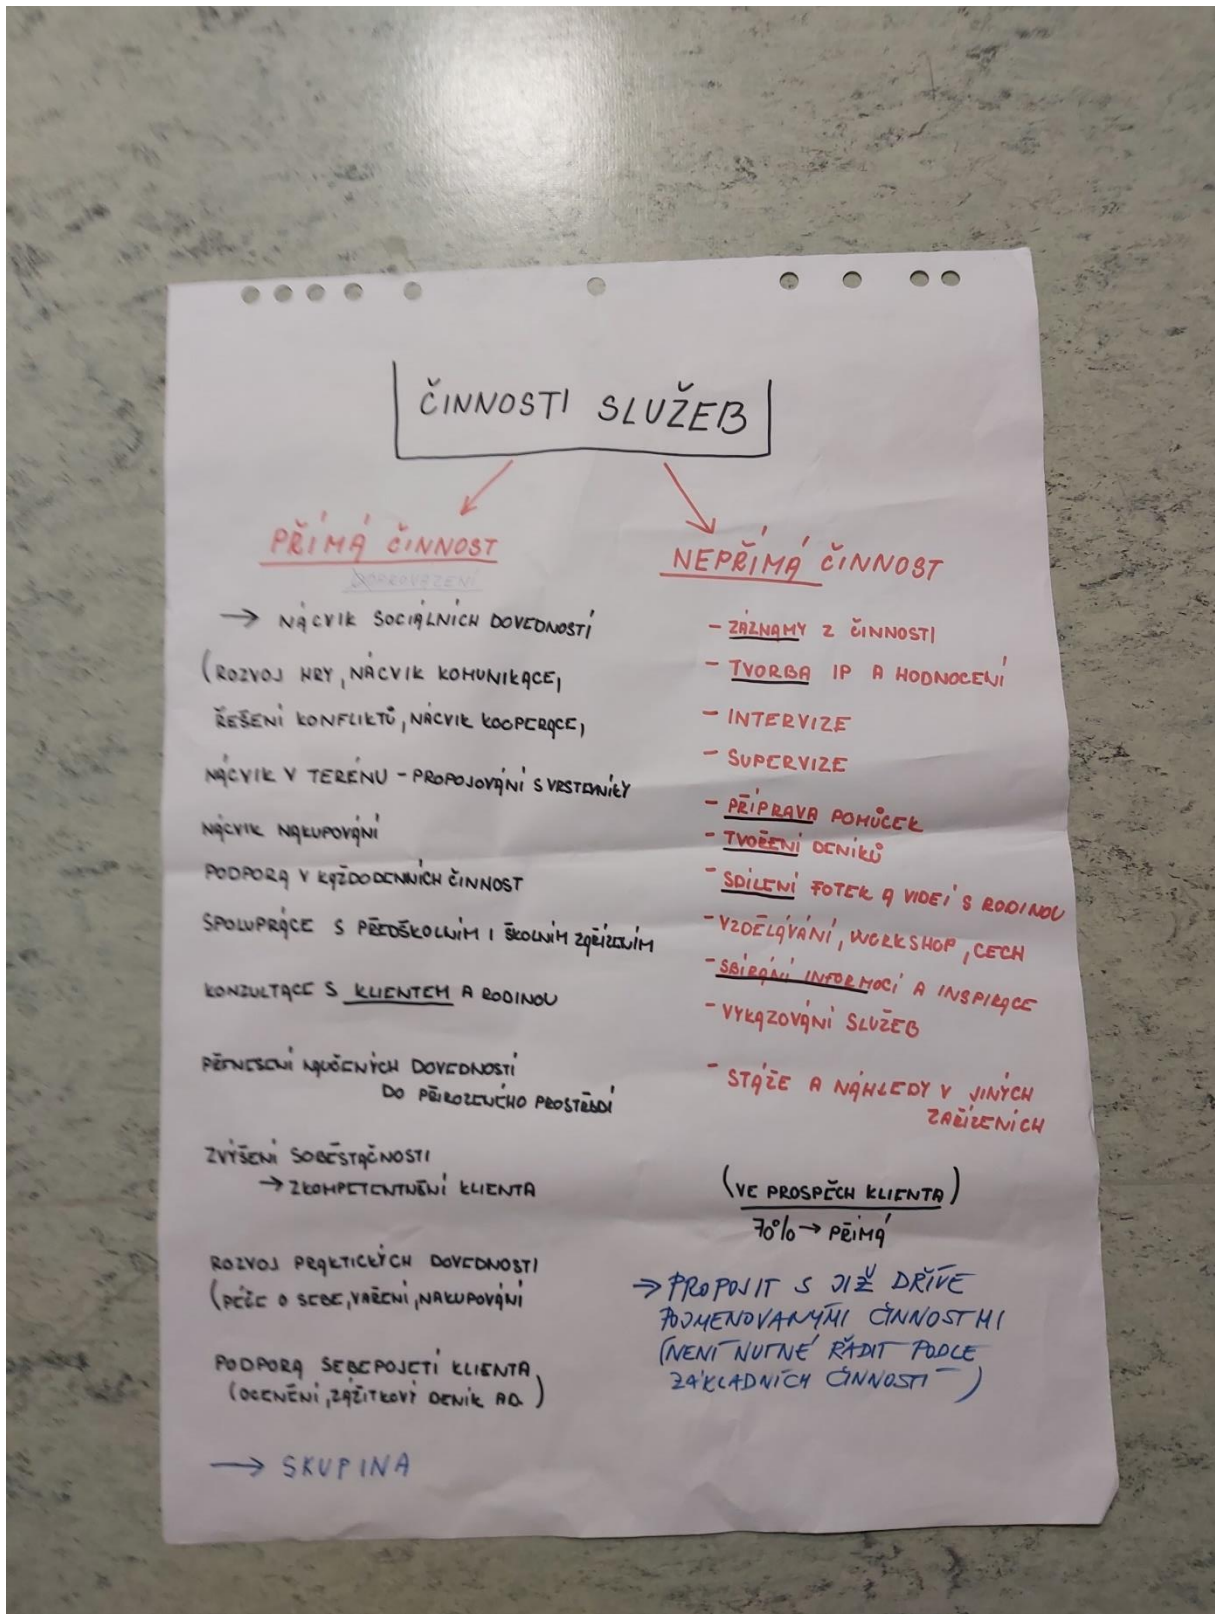 ČINNOSTI SLUŽEB
PŘÍMÁ ČINNOST
DOPROVÁZENÍ
→ NÁCVIK SOCIÁLNÍCH DOVEDNOSTÍ
(ROZVOJ HRY, NÁCVIK KOMUNIKACE,
ŘEŠENÍ KONFLIKTŮ, NÁCVIK KOOPERACE,
NÁCVIK V TERÉNU – PROPOJOVÁNÍ S VRSTEVNÍKY
NÁCVIK NAKUPOVÁNÍ
PODPORA V KAŽDODENNÍCH ČINNOST
SPOLUPRÁCE S PŘEDŠKOLNÍM I ŠKOLNÍM ZAŘÍZENÍM
KONZULTACE S KLIENTEM A RODINOU
PŘENESENÍ NAUČENÝCH DOVEDNOSTÍ
DO PŘIROZENÉHO PROSTŘEDÍ
ZVÝŠENÍ SOBĚSTAČNOSTI
→ ZKOMPETENTNĚNÍ KLIENTA
ROZVOJ PRAKTICKÝCH DOVEDNOSTI
(PÉČE O SEBE, VAŘENÍ, NAKUPOVÁNÍ
PODPORA SEBEPOJETÍ KLIENTA
(OCENĚNÍ, ZÁŽITKOVÝ DENÍK AD.)
→ SKUPINA
NEPŘÍMÁ ČINNOST
- ZÁZNAMY Z ČINNOSTI
- TVORBA IP A HODNOCENÍ
- INTERVIZE
- SUPERVIZE
- PŘÍPRAVA POMŮCEK
- TVOŘENÍ DENÍKŮ
- SDÍLENÍ FOTEK A VIDEÍ S RODINOU
- VZDĚLÁVÁNÍ, WORKSHOP, CECH
- SBÍRÁNÍ INFORMACÍ A INSPIRACE
- VYKAZOVÁNÍ SLUŽEB
- STÁŽE A NÁHLEDY V JINÝCH
ZAŘÍZENÍCH
(VE PROSPĚCH KLIENTA)
70% → PŘÍMÁ
→ PROPOJIT S JIŽ DŘÍVE
POJMENOVANÝMI ČINNOSTMI
(NENÍ NUTNÉ ŘADIT PODLE
ZÁKLADNÍCH ČINNOSTÍ)